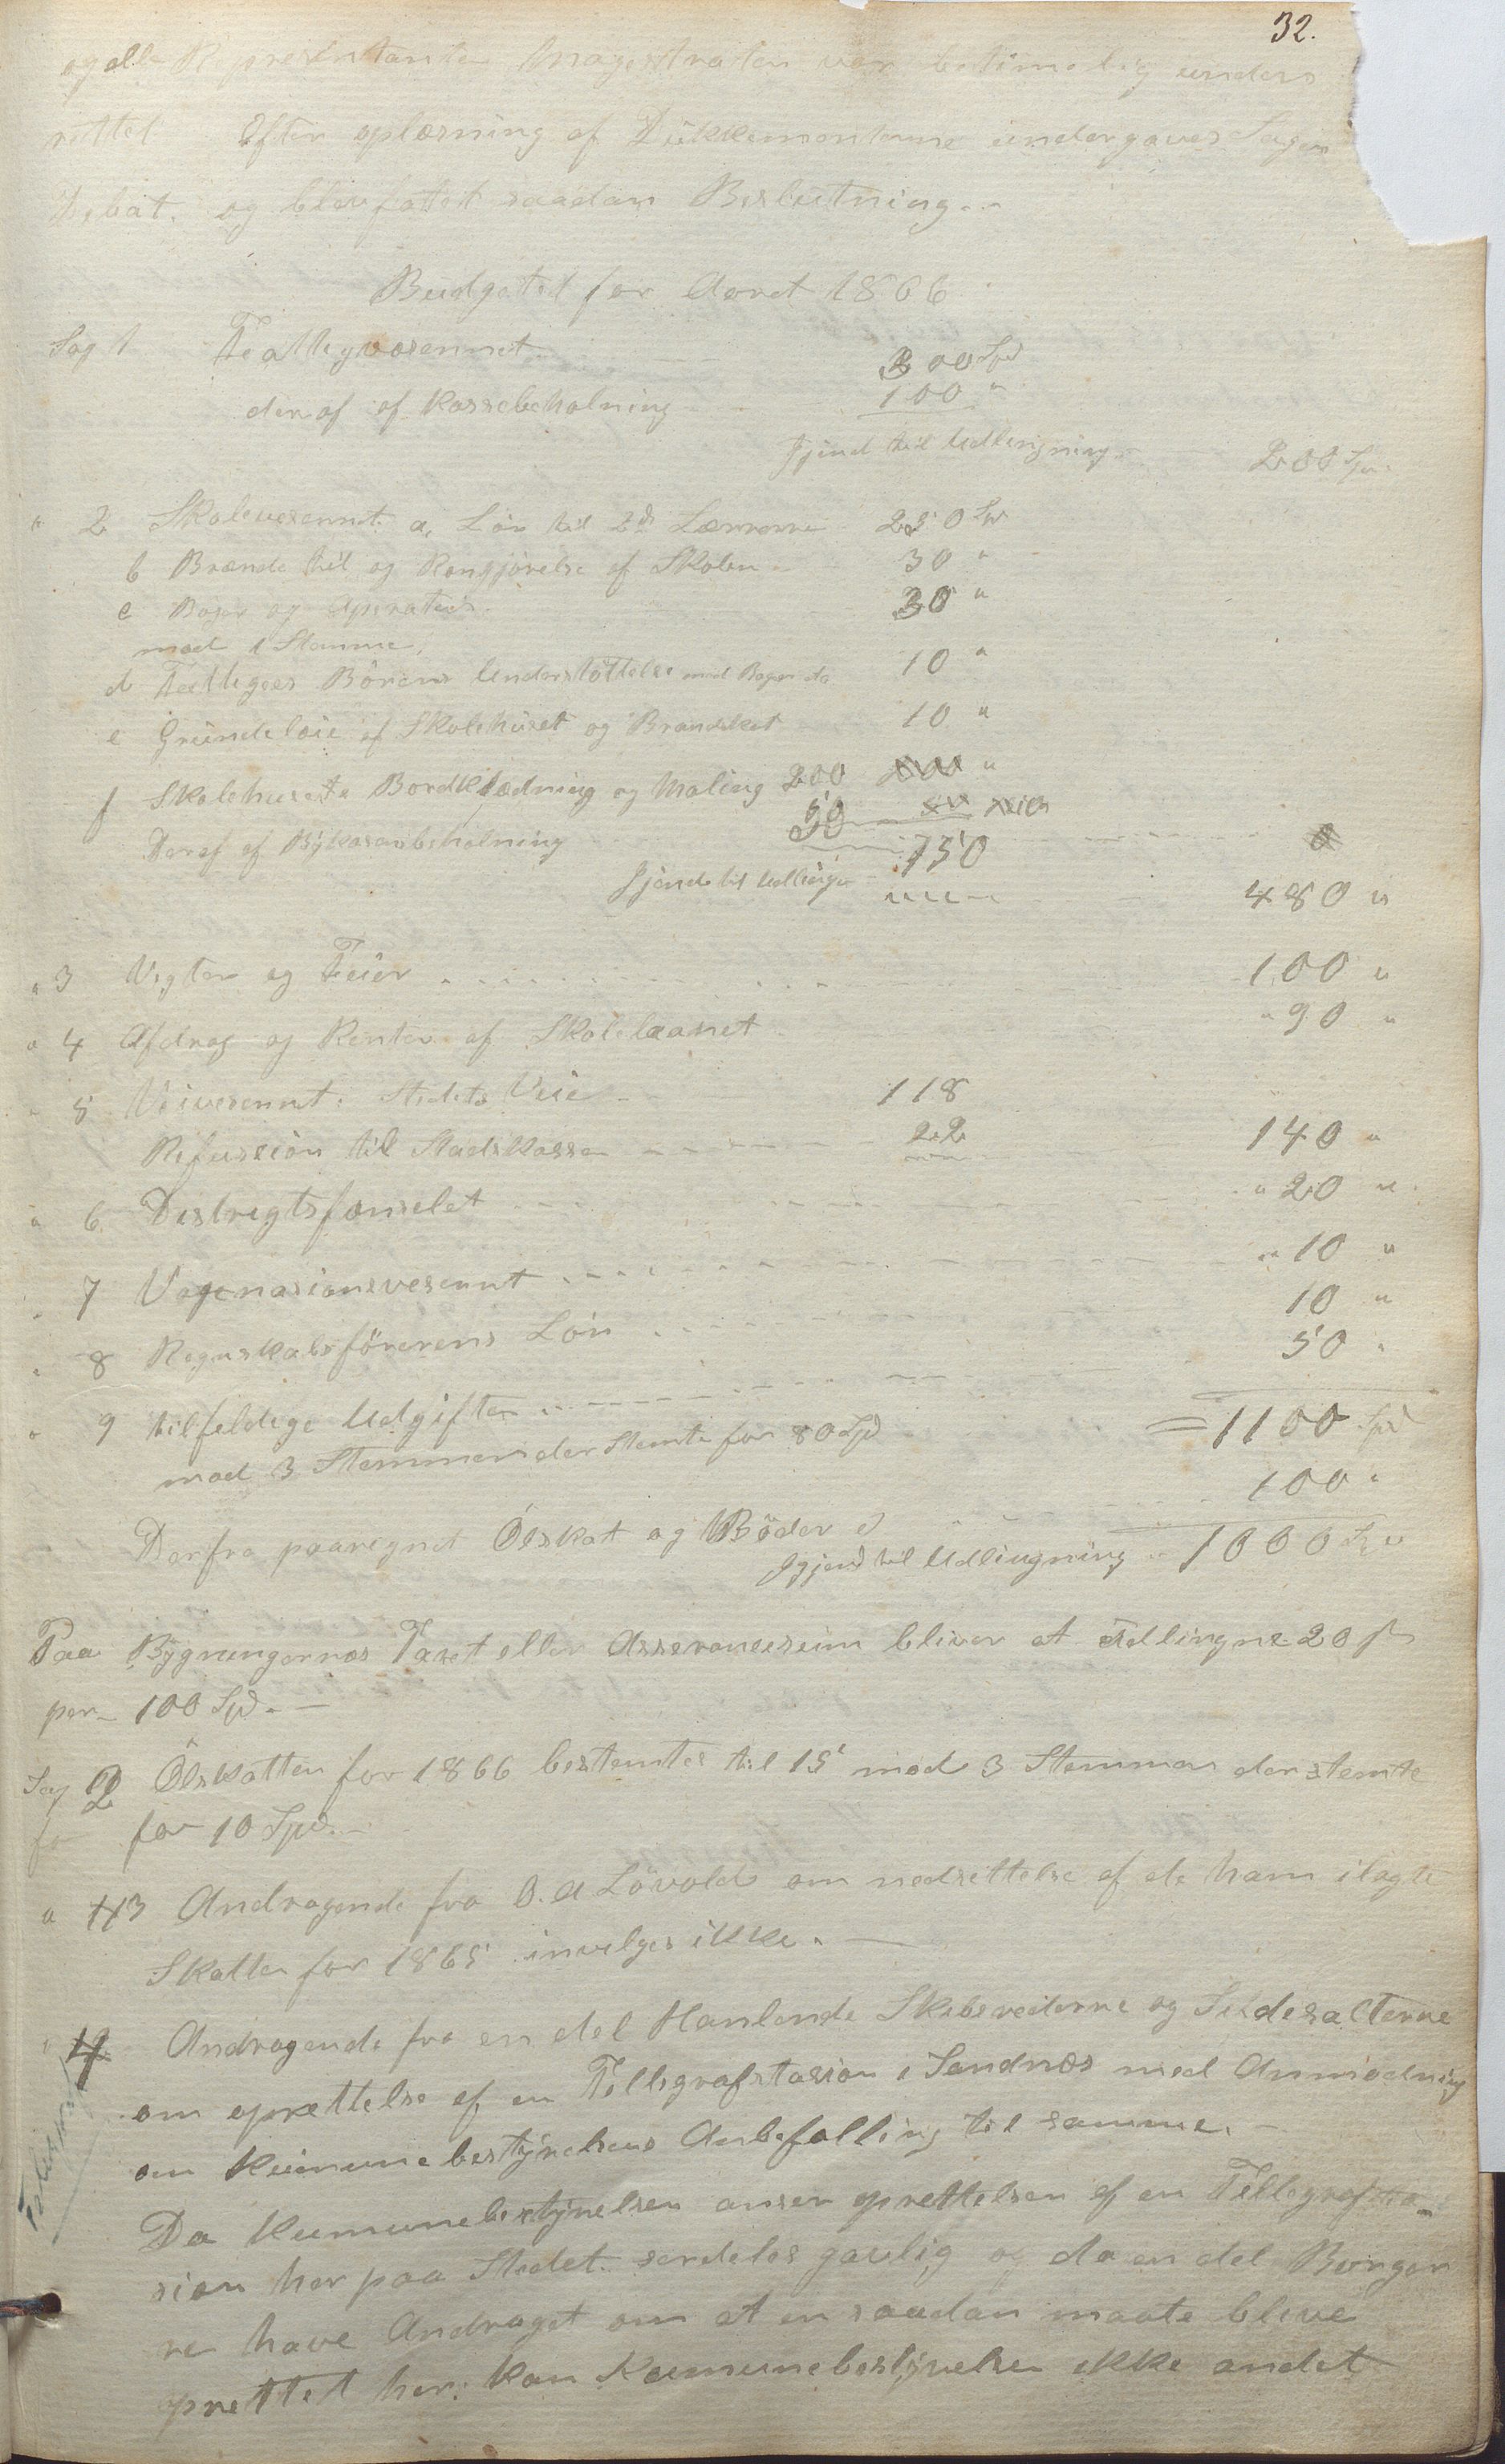 32.
og alle Representanter Magistraten var betimelig under
rettet Efter oplæsning af Dukkementerne undergaves Sagen
Debat. og blev fattet saadan Beslutning..
Budgeted for Aaret 1866
Sag 1 Fattigvæsennet 300 Spd
deraf af Kassebeholning 100 "
Igjend til Udligning 200 Spd.
" 2 Skolevesennet a, Lön til 2de Lærerne 250 Spd
b Brænde til og Rengjörelse af Skolen 30 "
c Böger og Aperater 30 "
mod 1 Stemme,
d Fattiges Börens Understöttelse med Böger do 10 "
e Grundeleie af Skolehuset og Brandskat 10 "
f Skolehusets Bordklædning og Maling 200 "
Deraf af Bykassenbeholning 50
150
Igjend til Udligning 480 "
" 3 Vegter og Feier 100 "
" 4 Afdrag og Renter af Skolelaanet " 90 "
" 5 Veivesennet. Stedets Veie 118
Refussion til Stadskassen 22 140 "
" 6 Destrigtsfænselet " 20 "
" 7 Vagsinasionsvesennet " 10 "
" 8 Regnskabsförerens Lön 10 "
" 9 tilfeldige Udgifter 50 "
mod 3 Stemmer der stemte for 80 Spd = 1100 Spd
Derfra paaregnet Ölskat og Böder 100 "
Igjend til Udlingning 1000 Spd
Paa Bygningernes Taxt eller Asseranceseum bliver at udlingne 20 s
per 100 Spd.
Sag 2 Ölskatten for 1866 bestemtes til 15 mod 3 Stemmer der stemte
for 10 Spd.
" 3 Andragende fra O. A Lövold om nedsettelse af de ham ilagte
Skatter for 1865 invelges ikke.
" 4 Andragende fra en del Hanlende Skibsreederne og Sildesalterne
om oprettelse af en Tellegrafstasion i Sandnæs med Anmodning
om Kumunebestyrelsens Anbefalling til samme.
Da Kumunebestyrelsen anser oprettelsen af en Tellegrafsta-
sion her paa Stedet særdeles gavlig og da en del Borger
re have Andraget om at en saadan maate blive
oprettet her. kan Kumunebestyrelsen ikke andet